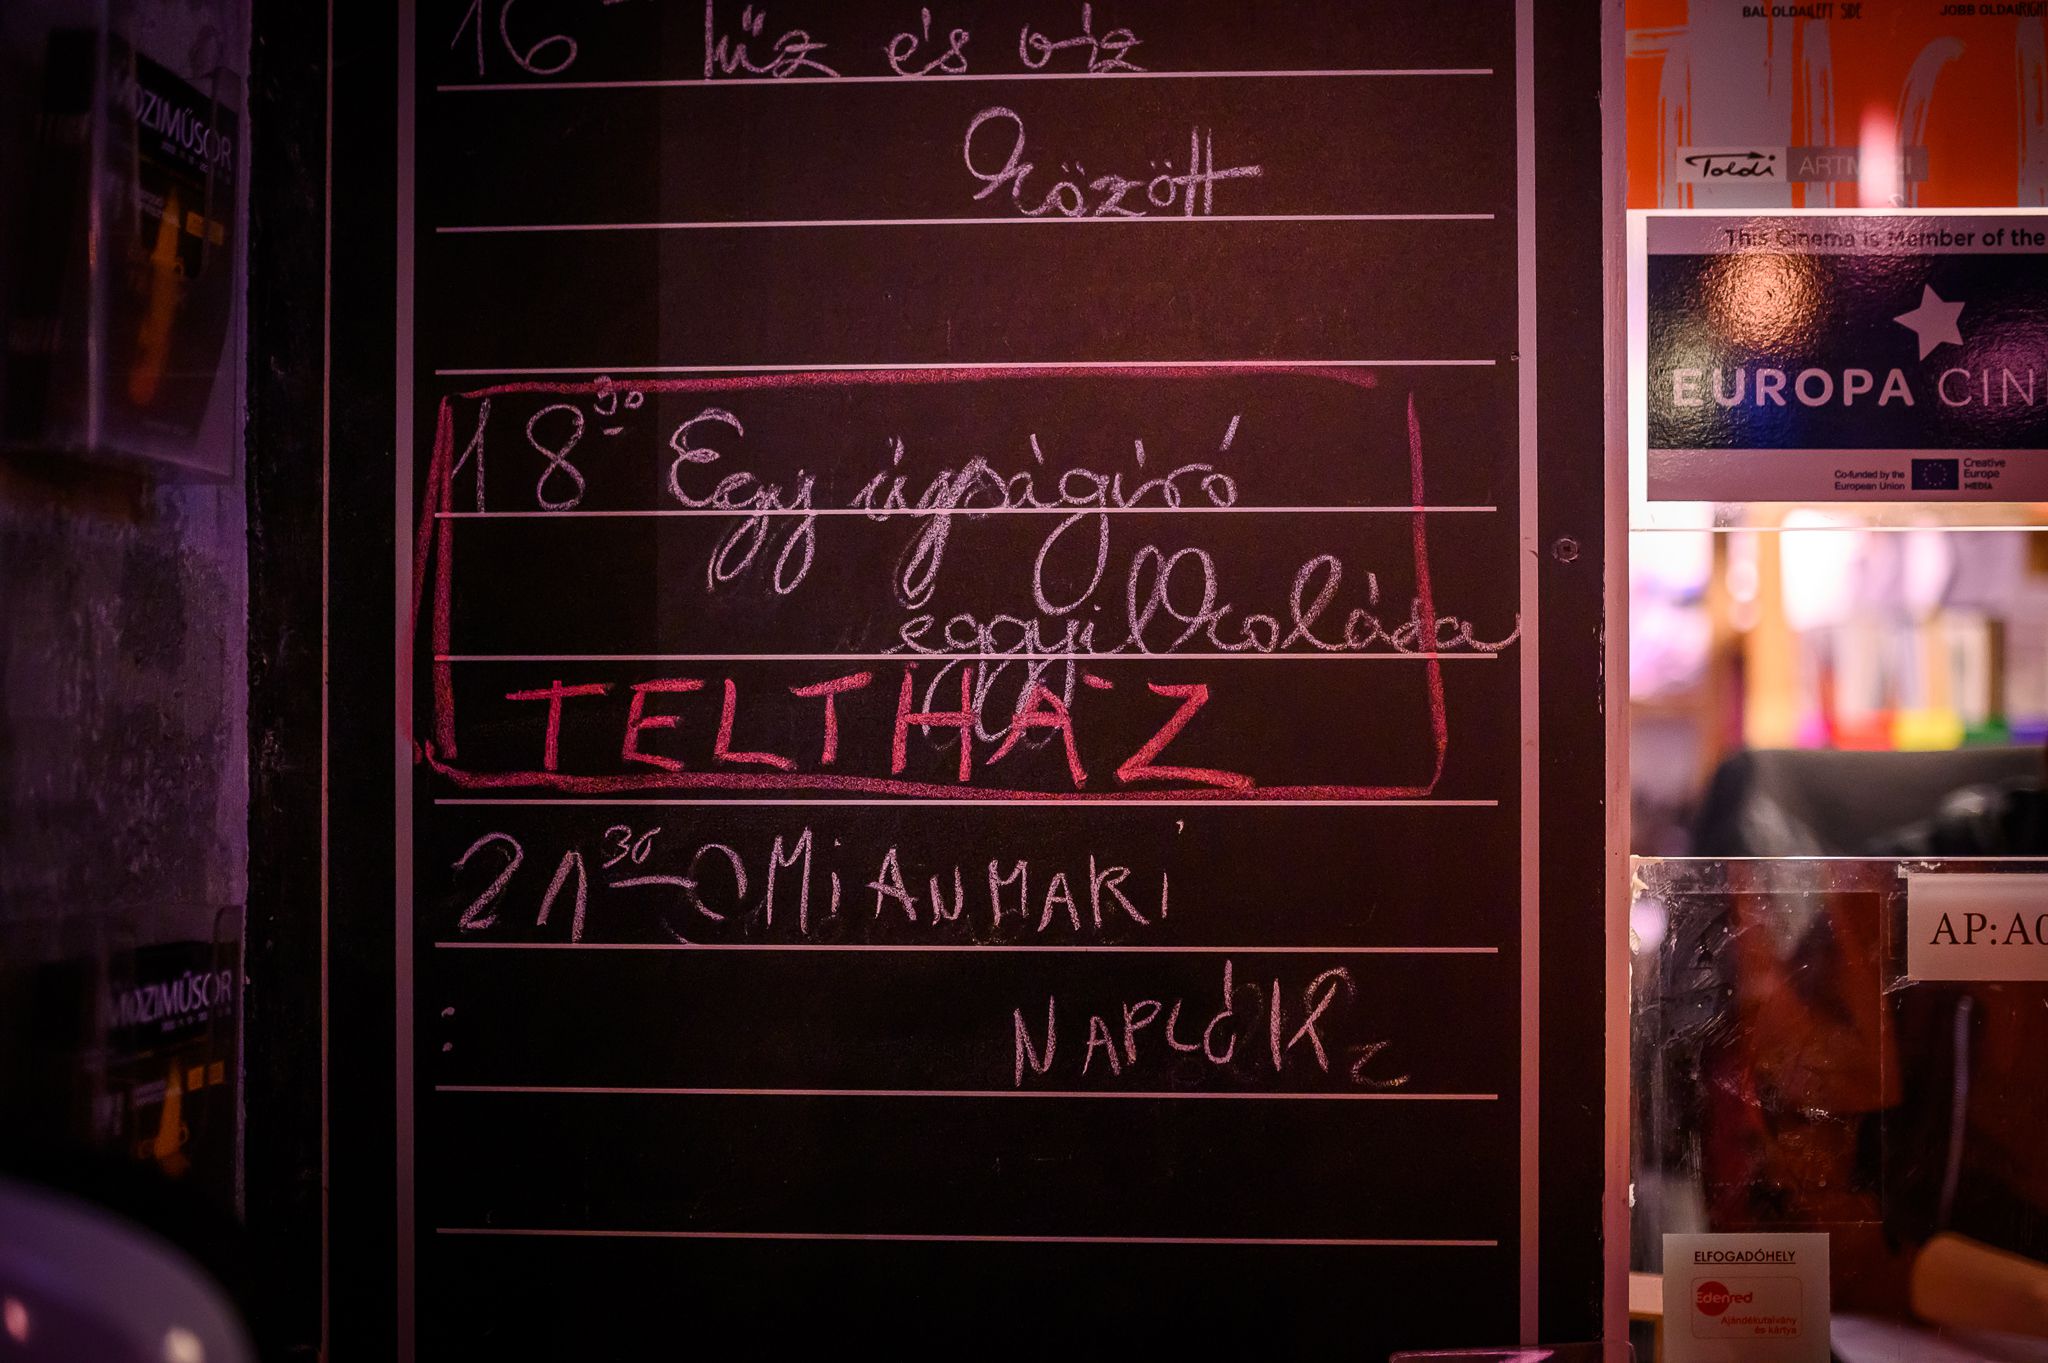 16 Tűz és víz
között
18 00 Egy újságíró
eggyilkolása
TELTHÁZ
21 30 MIANMARI
NAPLÓK
MOZIMŰSOR
MOZIMŰSOR
BAL OLDAL LEFT SIDE
JOBB OLDAL RIGH
Toldi ARTMOZI
This Cinema is Member of the
EUROPA CIN
Co-funded by the
European Union
Creative
Europe
MEDIA
AP:A0
ELFOGADÓHELY
Edenred
Ajándékutalvány
és kártya